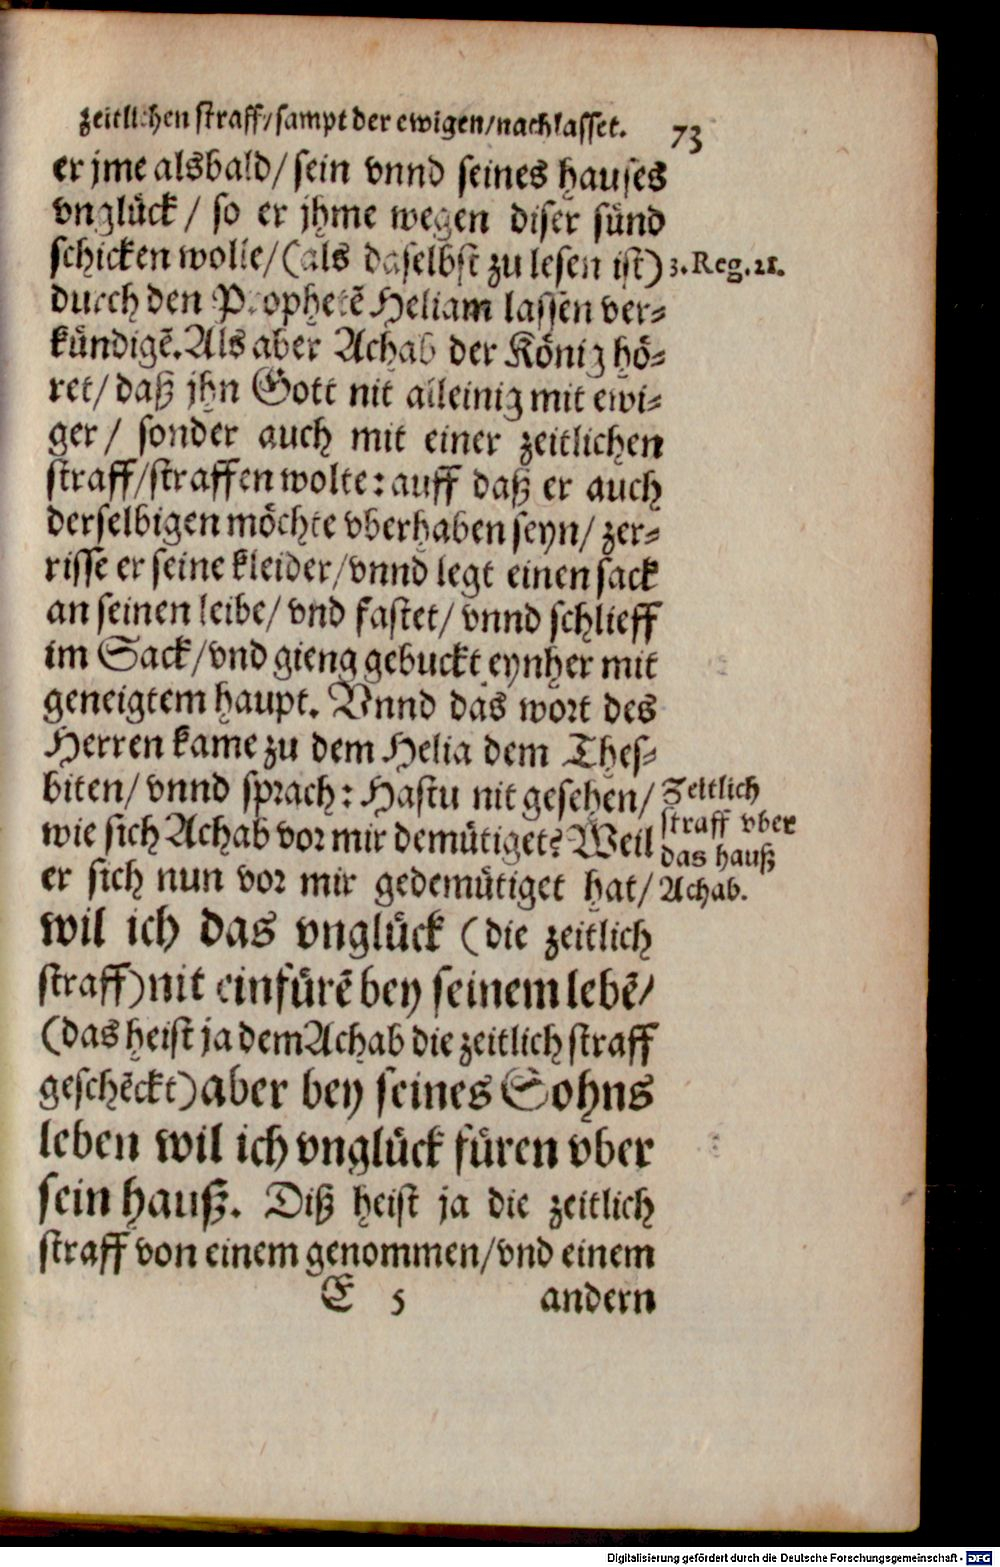 zeitlichen straff/sampt der ewigen/nachlasset. 73
er jme alsbald/ sein vnnd seines hauses
vnglück / so er jhme wegen diser sünd
schicken wolle/(als daselbst zu lesen ist) 3.Reg.21.
durch den Prophetē Heliam lassen ver-
kündigē. Als aber Achab der König hö-
ret/ daß jhn Gott nit alleinig mit ewi-
ger / sonder auch mit einer zeitlichen
straff/straffen wolte: auff daß er auch
derselbigen möchte vberhaben seyn/ zer-
risse er seine kleider/vnnd legt einen sack
an seinen leibe/ vnd fastet/ vnnd schlieff
im Sack/vnd gieng gebuckt eynher mit
geneigtem haupt. Vnnd das wort des
Herren kame zu dem Helia dem Thes-
biten/ vnnd sprach: Hastu nit gesehen/
wie sich Achab vor mir demütiget? Weil
er sich nun vor mir gedemütiget hat/
Zeitlich
straff vber
das hauß
Achab.
wil ich das vnglück (die zeitlich
straff)nit einfürē bey seinem lebē/
(das heist ja dem Achab die zeitlich straff
geschēckt) aber bey seines Sohns
leben wil ich vnglück füren vber
sein hauß. Diß heist ja die zeitlich
straff von einem genommen/vnd einem
E 5 andern
Digitalisierung gefördert durch die Deutsche Forschungsgemeinschaft - DFG